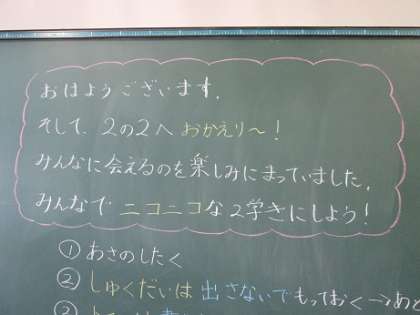 おはようございます。
そして、2の2へ おかえり〜！
みんなに会えるのを楽しみにまっていました。
みんなで ニコニコな2学きにしよう！
① あさのしたく
② しゅくだいは 出さないで もっておく→あ